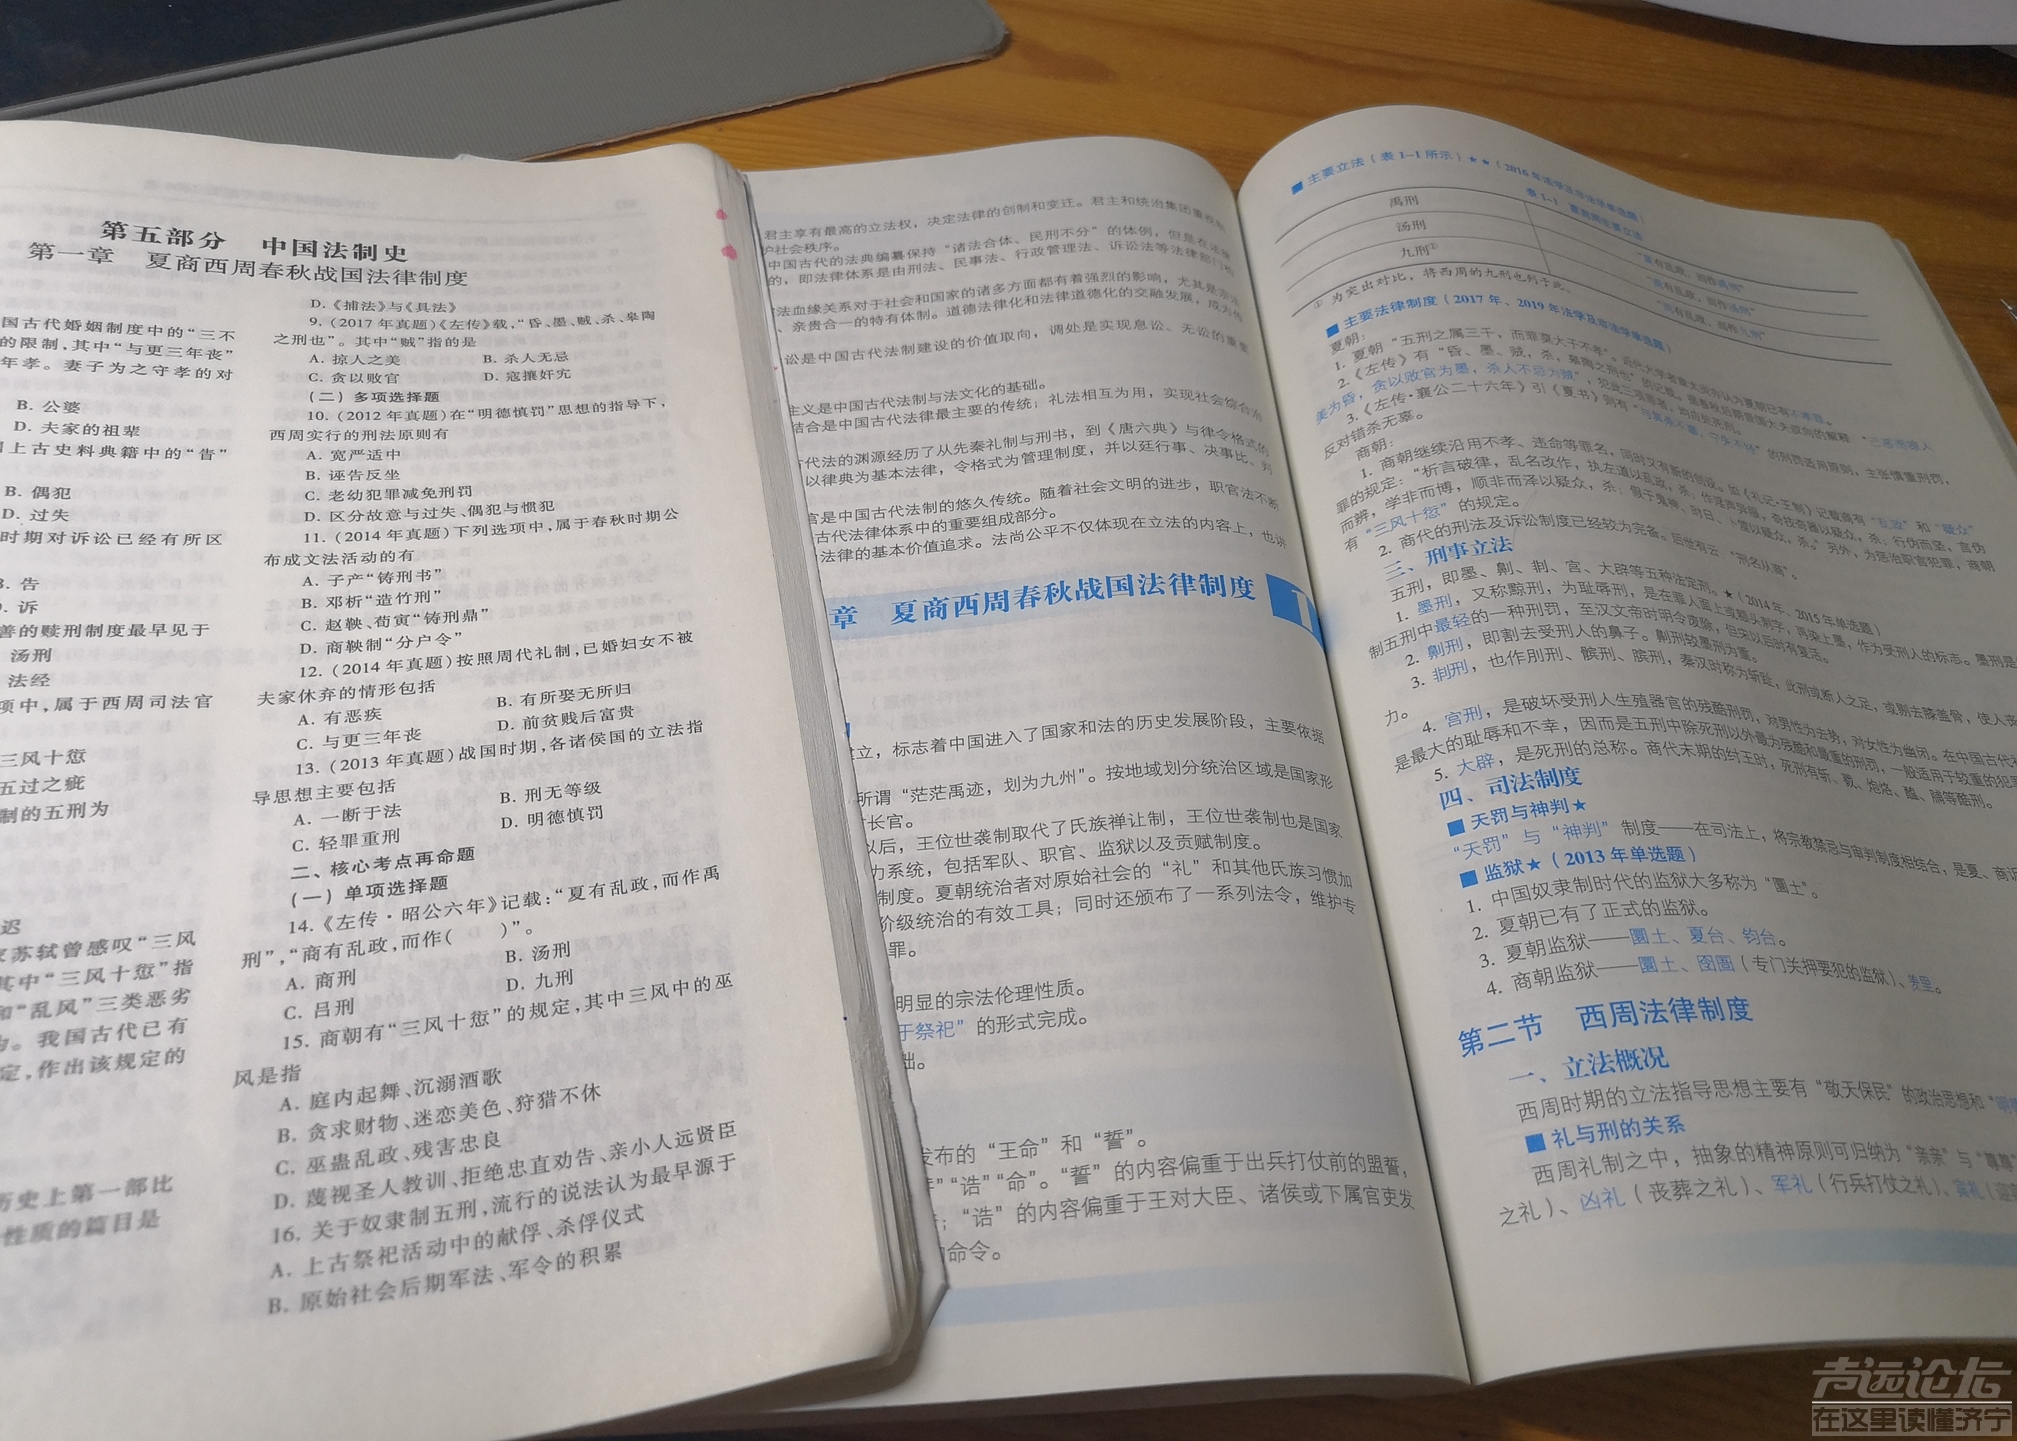 第五部分 中国法制史
第一章 夏商西周春秋战国法律制度
国古代婚姻制度中的“三不
的限制,其中“与更三年丧”
年孝。妻子为之守孝的对
B. 公婆
D. 夫家的祖辈
上古史料典籍中的“眚”
B. 偶犯
D. 过失
时期对诉讼已经有所区
B. 告
D. 诉
善的赎刑制度最早见于
汤刑
法经
项中,属于西周司法官
三风十愆
五过之疵
制的五刑为
迟
家苏轼曾感叹“三风
其中“三风十愆”指
和“乱风”三类恶劣
为。我国古代已有
定,作出该规定的
历史上第一部比
性质的篇目是
D.《捕法》与《具法》
9.(2017年真题)《左传》载,“昏、墨、贼、杀、皋陶
之刑也”。其中“贼”指的是
A. 掠人之美 B. 杀人无忌
C. 贪以败官 D. 寇攘奸宄
(二)多项选择题
10.(2012年真题)在“明德慎罚”思想的指导下,
西周实行的刑法原则有
A. 宽严适中
B. 诬告反坐
C. 老幼犯罪减免刑罚
D. 区分故意与过失、偶犯与惯犯
11.(2014年真题)下列选项中,属于春秋时期公
布成文法活动的有
A. 子产“铸刑书”
B. 邓析“造竹刑”
C. 赵鞅、荀寅“铸刑鼎”
D. 商鞅制“分户令”
12.(2014年真题)按照周代礼制,已婚妇女不被
夫家休弃的情形包括
A. 有恶疾 B. 有所娶无所归
C. 与更三年丧 D. 前贫贱后富贵
13.(2013年真题)战国时期,各诸侯国的立法指
导思想主要包括
A. 一断于法 B. 刑无等级
C. 轻罪重刑 D. 明德慎罚
二、核心考点再命题
(一)单项选择题
14.《左传·昭公六年》记载:“夏有乱政,而作禹
刑”,“商有乱政,而作( )”。
A. 商刑 B. 汤刑
C. 吕刑 D. 九刑
15. 商朝有“三风十愆”的规定,其中三风中的巫
风是指
A. 庭内起舞、沉溺酒歌
B. 贪求财物、迷恋美色、狩猎不休
C. 巫蛊乱政、残害忠良
D. 蔑视圣人教训、拒绝忠直劝告、亲小人远贤臣
16. 关于奴隶制五刑,流行的说法认为最早源于
A. 上古祭祀活动中的献俘、杀俘仪式
B. 原始社会后期军法、军令的积累
君主享有最高的立法权,决定法律的创制和变迁。君主和统治集团重视
护社会秩序。
中国古代的法典编纂保持“诸法合体、民刑不分”的体例,但是在法律
的,即法律体系是由刑法、民事法、行政管理法、诉讼法等法律部门
法血缘关系对于社会和国家的诸多方面都有着强烈的影响,尤其是宗法
、亲贵合一的特有体制。道德法律化和法律道德化的交融发展,成为传
讼是中国古代法制建设的价值取向,调处是实现息讼、无讼的重要
主义是中国古代法制与法文化的基础。
结合是中国古代法律最主要的传统;礼法相互为用,实现社会综合治
古代法的渊源经历了从先秦礼制与刑书,到《唐六典》与律令格式的
以律典为基本法律,令格式为管理制度,并以廷行事、决事比、判
官是中国古代法制的悠久传统。随着社会文明的进步,职官法不断
古代法律体系中的重要组成部分。
法律的基本价值追求。法尚公平不仅体现在立法的内容上,也讲
章 夏商西周春秋战国法律制度
建立,标志着中国进入了国家和法的历史发展阶段,主要依据
所谓“茫茫禹迹,划为九州”。按地域划分统治区域是国家形
长官。
以后,王位世袭制取代了氏族禅让制,王位世袭制也是国家
力系统,包括军队、职官、监狱以及贡赋制度。
制度。夏朝统治者对原始社会的“礼”和其他氏族习惯加
阶级统治的有效工具;同时还颁布了一系列法令,维护专
罪。
明显的宗法伦理性质。
于祭祀”的形式完成。
础。
发布的“王命”和“誓”。
“诰”“命”。“誓”的内容偏重于出兵打仗前的盟誓,
;“诰”的内容偏重于王对大臣、诸侯或下属官吏发
命令。
■ 主要立法(表1-1所示)★★(2016年法学及非法学单选题)
表1-1 夏商周主要立法
禹刑 “夏有乱政,而作禹刑”
汤刑 “商有乱政,而作汤刑”
九刑① “周有乱政,而作九刑”
① 为突出对比,将西周的九刑也列于此。
■ 主要法律制度(2017年、2019年法学及非法学单选题)
夏朝:
1. 夏朝“五刑之属三千,而罪莫大于不孝”。近代大学者章太炎亦认为夏朝已有不孝罪。
2.《左传》有“昏、墨、贼,杀,皋陶之刑也”的记载。据春秋后期晋国大夫叔向的解释,“己恶而掠人
美为昏,贪以败官为墨,杀人不忌为贼”,犯此三项罪者,均应处死刑。
3.《左传·襄公二十六年》引《夏书》则有“与其杀不辜,宁失不经”的刑罚适用原则,主张慎重刑罚,
反对错杀无辜。
商朝:
1. 商朝继续沿用不孝、违命等罪名,同时又有新的创设。如《礼记·王制》记载商有“乱政”和“疑众”
罪的规定:“析言破律,乱名改作,执左道以乱政,杀;作淫声异服,奇技奇器以疑众,杀;行伪而坚,言伪
而辨,学非而博,顺非而泽以疑众,杀;假于鬼神、时日、卜筮以疑众,杀。”另外,为惩治职官犯罪,商朝
有“三风十愆”的规定。
2. 商代的刑法及诉讼制度已经较为完备。后世有云,“刑名从商”。
三、刑事立法
五刑,即墨、劓、剕、宫、大辟等五种法定刑。★(2014年、2015年单选题)
1. 墨刑,又称黥刑,为耻辱刑,是在罪人面上或额头刺字,再染上墨,作为受刑人的标志。墨刑是
制五刑中最轻的一种刑罚,至汉文帝时明令废除,但宋以后时有复活。
2. 劓刑,即割去受刑人的鼻子。劓刑较墨刑为重。
3. 剕刑,也作刖刑、髌刑、膑刑,秦汉时称为斩趾,此刑或断人之足,或剔去膝盖骨,使人丧
力。
4. 宫刑,是破坏受刑人生殖器官的残酷刑罚,对男性为去势,对女性为幽闭。在中国古代
是最大的耻辱和不幸,因而是五刑中除死刑以外最为残酷和最重的刑罚,一般适用于较重的犯罪
5. 大辟,是死刑的总称。商代末期的纣王时,死刑有斩、戮、炮烙、醢、脯等酷刑。
四、司法制度
■ 天罚与神判★
“天罚”与“神判”制度——在司法上,将宗教禁忌与审判制度相结合,是夏、商
■ 监狱★(2013年单选题)
1. 中国奴隶制时代的监狱大多称为“圜土”。
2. 夏朝已有了正式的监狱。
3. 夏朝监狱——圜土、夏台、钧台。
4. 商朝监狱——圜土、囹圄(专门关押要犯的监狱)、羑里。
第二节 西周法律制度
一、立法概况
西周时期的立法指导思想主要有“敬天保民”的政治思想和“明
■ 礼与刑的关系
西周礼制之中,抽象的精神原则可归纳为“亲亲”与“尊尊”
之礼)、凶礼(丧葬之礼)、军礼(行兵打仗之礼)、宾礼(迎
声远论坛
在这里读懂济宁